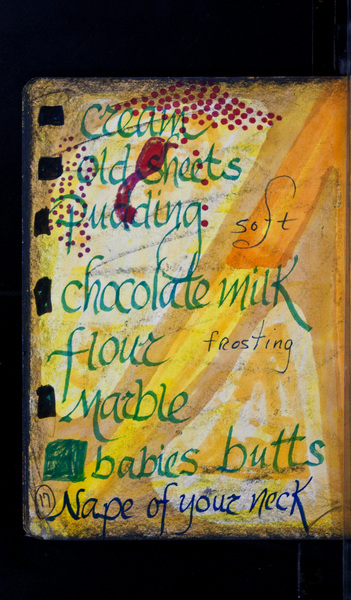 cream
old sheets
pudding
soft
chocolate milk
flour
frosting
Marble
babies butts
17 Nape of your neck